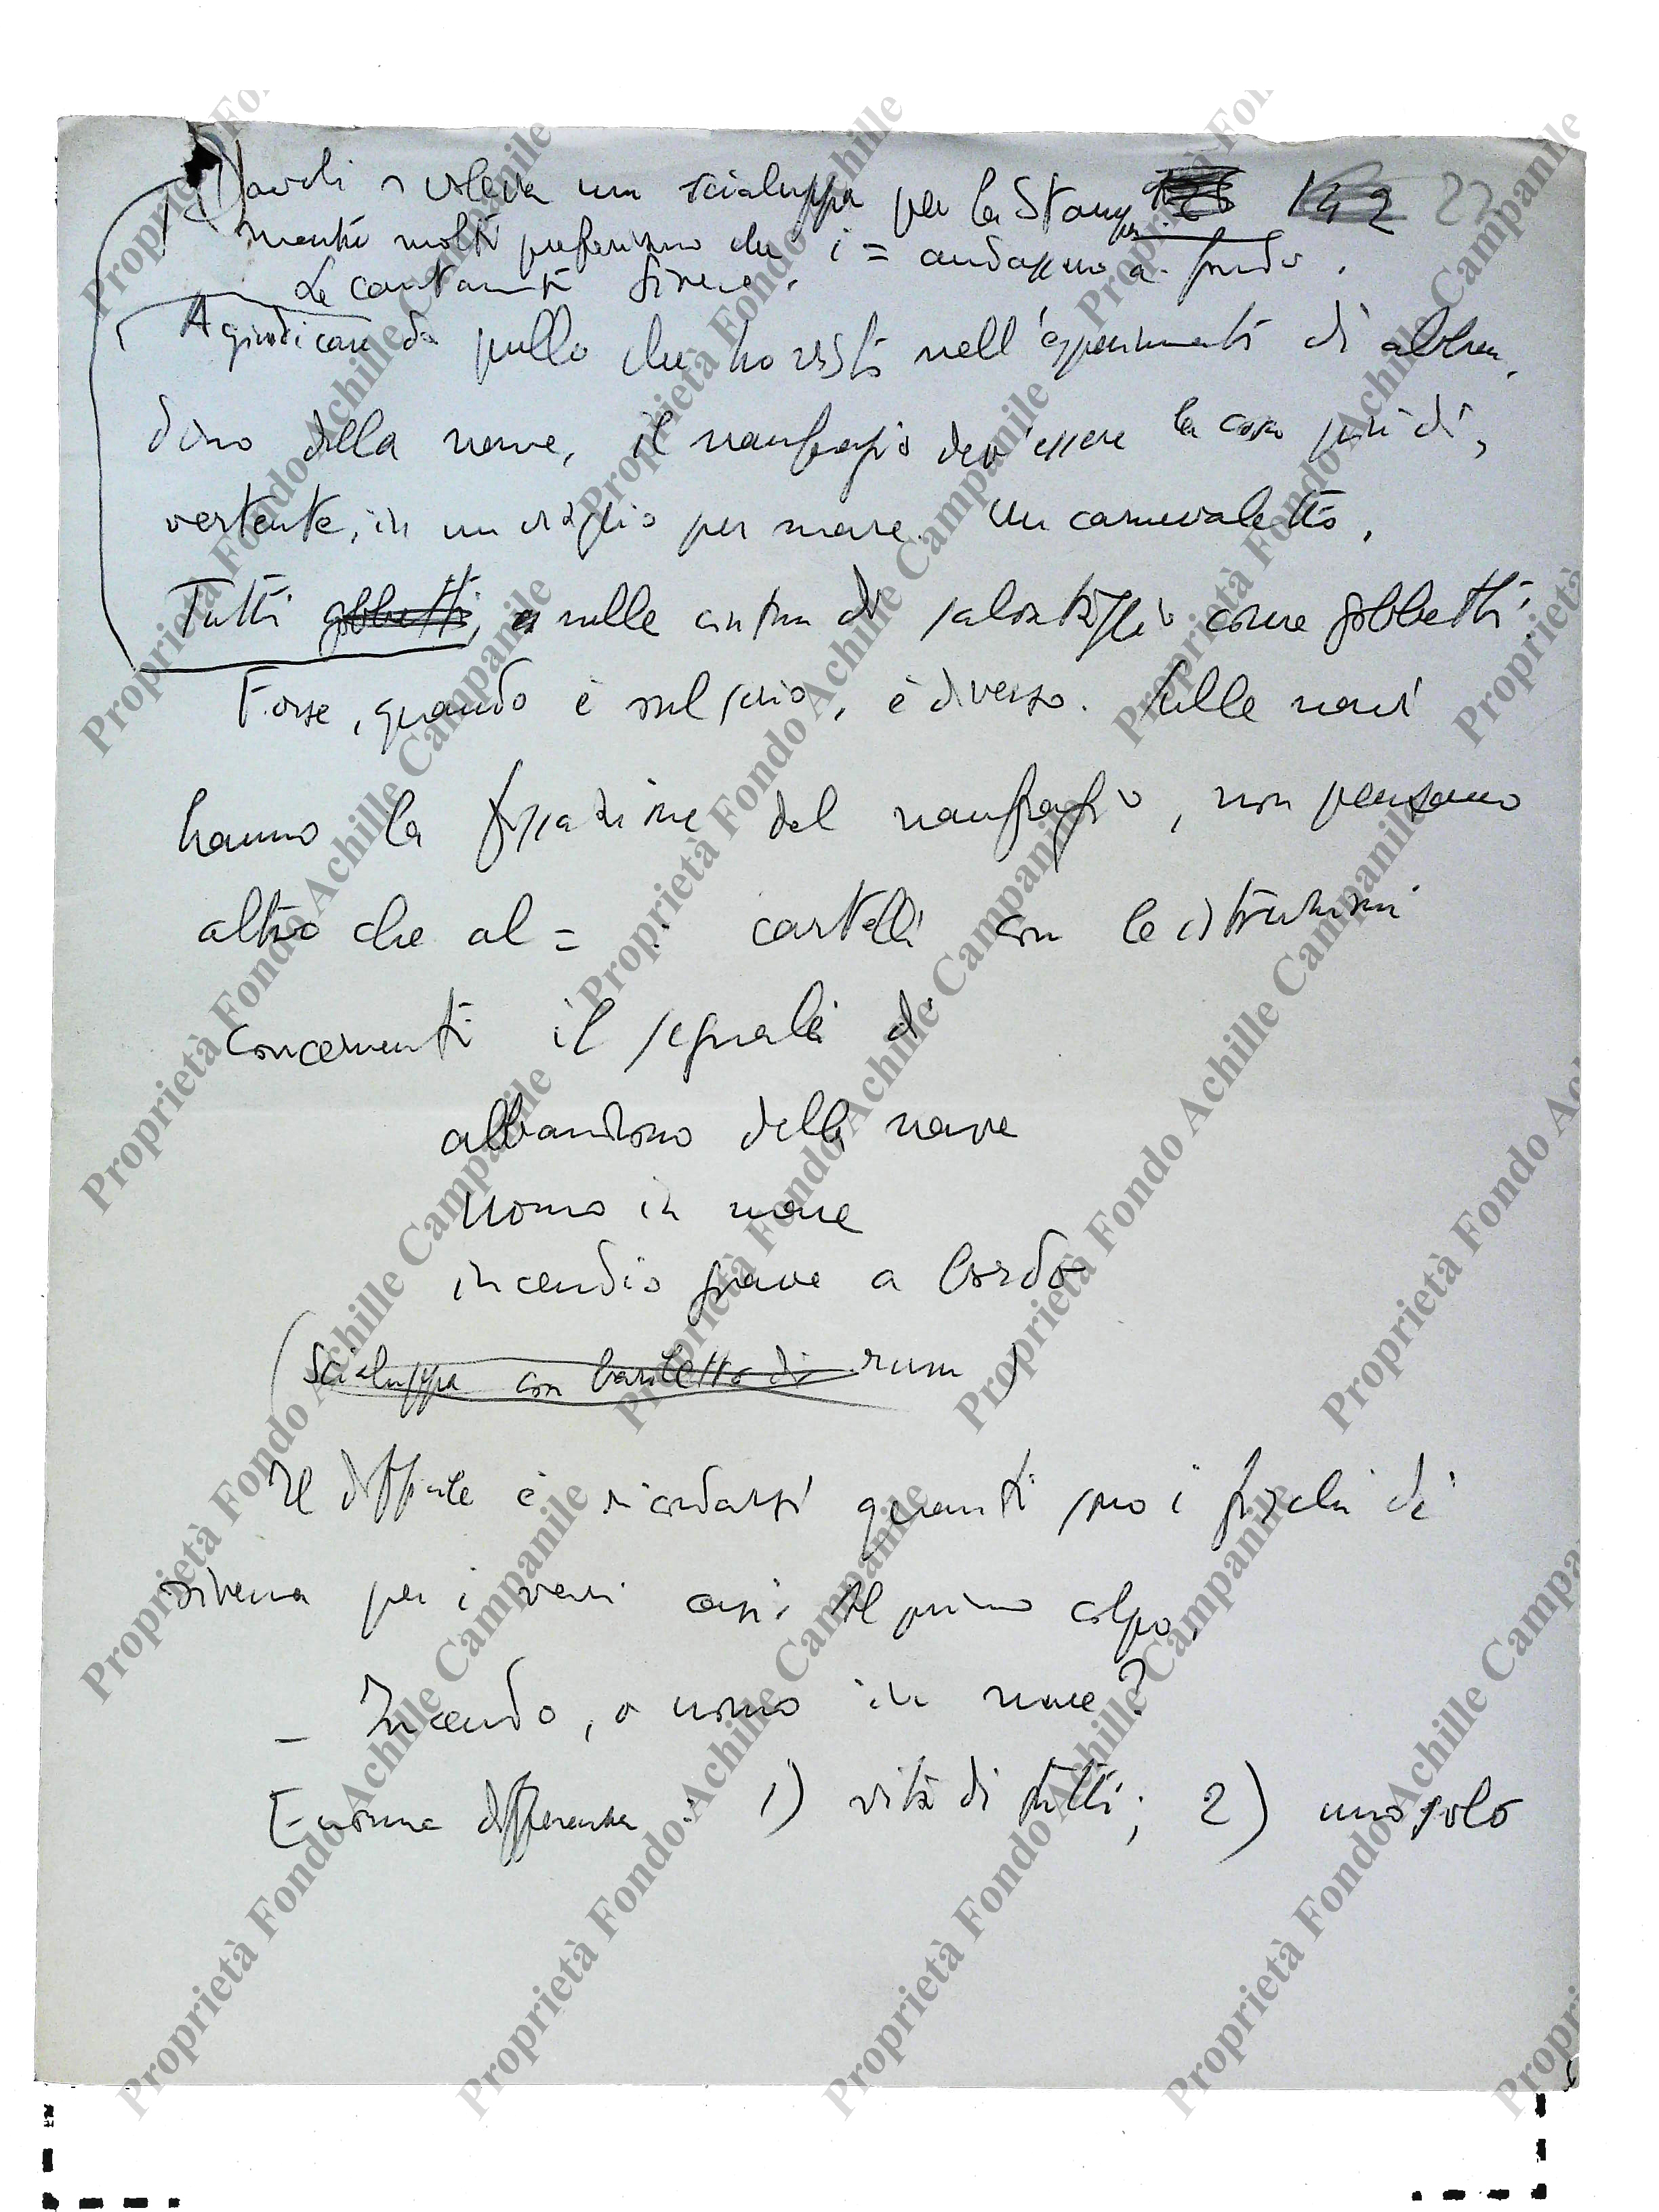 voleva una scialuppa per la Stampa 142 22
mentre molti preferivano che i = andassero a fondo.
Le cantanti sirene.
A giudicare da quello che ho visto nell'esperimento di abban
dono della nave, il naufragio dev'essere la cosa più di,
vertente, in un viaggio per mare. Un carnevaletto.
Tutti gobbetti, nelle cinture di salvataggio come gobbetti.
Forse, quando è sul serio, è diverso. Sulle navi
hanno la fissazione del naufragio, non pensano
altro che al = cartelli con le istruzioni
concernenti il segnale di
abbandono della nave
Uomo in mare
incendio grave a bordo
(Scialuppa con bariletto di rum)
Il difficile è ricordarsi quanti sono i fischi di
sirena per i vari casi. Al primo colpo.
– Incendio, o uomo in mare?
Enorme differenza: 1) vita di tutti; 2) uno solo
Proprietà Fondo Achille Campanile